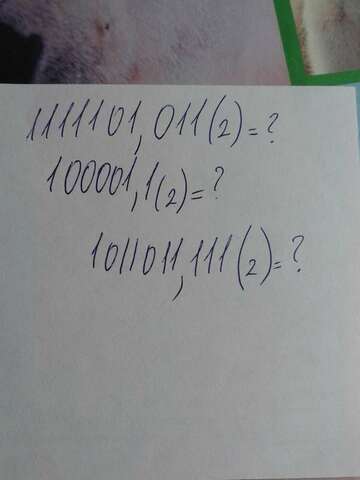 1111101,011(2)=?
100001,1(2)=?
1011011,111(2)=?